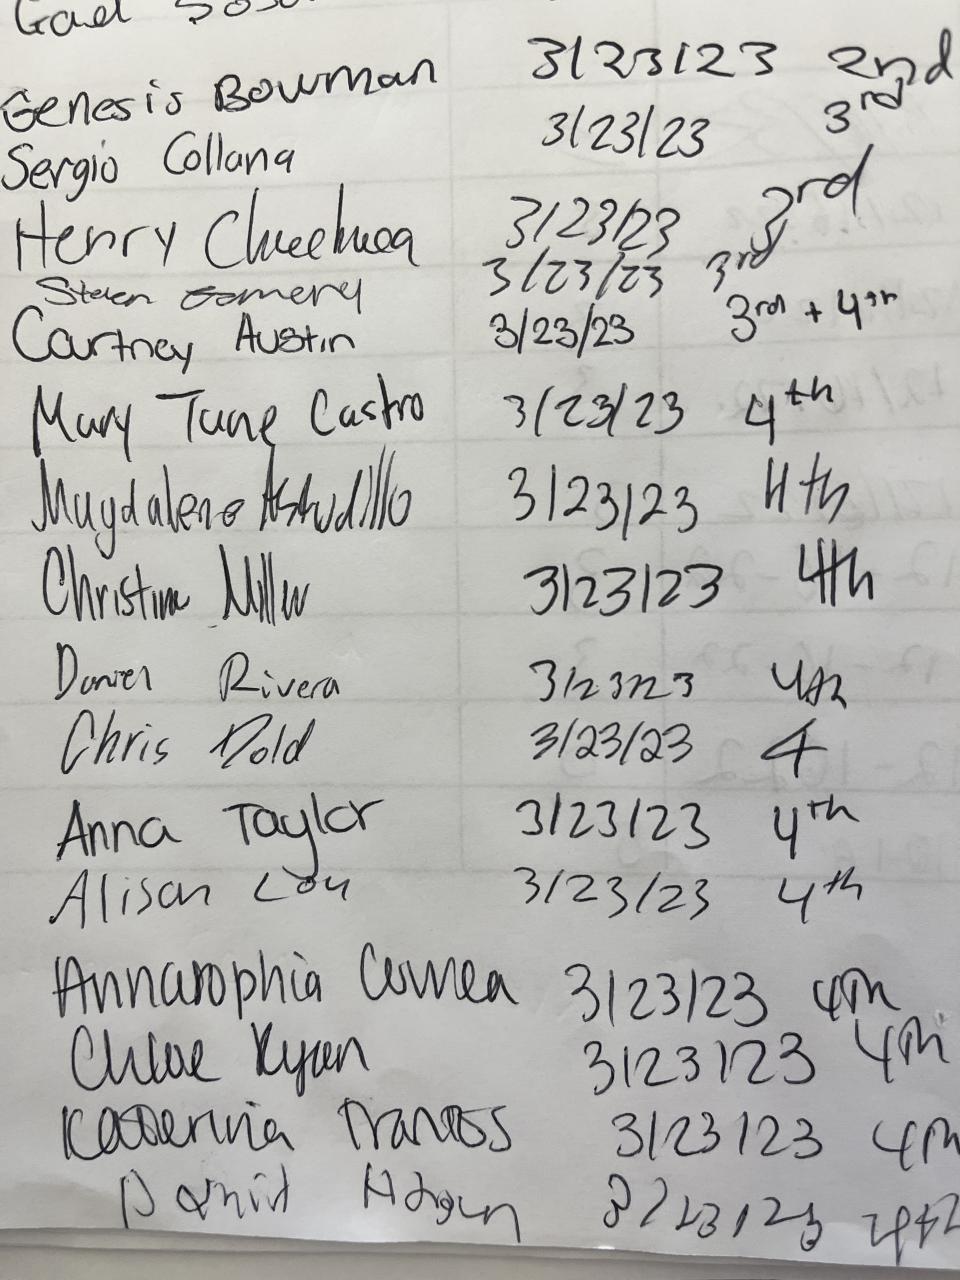 Gael
Genesis Bowman 3/23/23 2nd
Sergio Collana 3/23/23 3rd
Henry 3/23/23 3rd
Steven 3/23/23 3rd
Cartney Austin 3/23/23 3rd + 4th
Mary Tune Castro 3/23/23 4th
Magdaleno Astudillo 3/23/23 4th
Christine Miller 3/23/23 4th
Daniel Rivera 3/23/23 4th
Chris Dold 3/23/23 4
Anna Taylor 3/23/23 4th
Alison 3/23/23 4th
Annasophia Correa 3/23/23 4th
Chloe Ryan 3/23/23 4th
Katerina 3/23/23 4th
David 3/23/23 4th